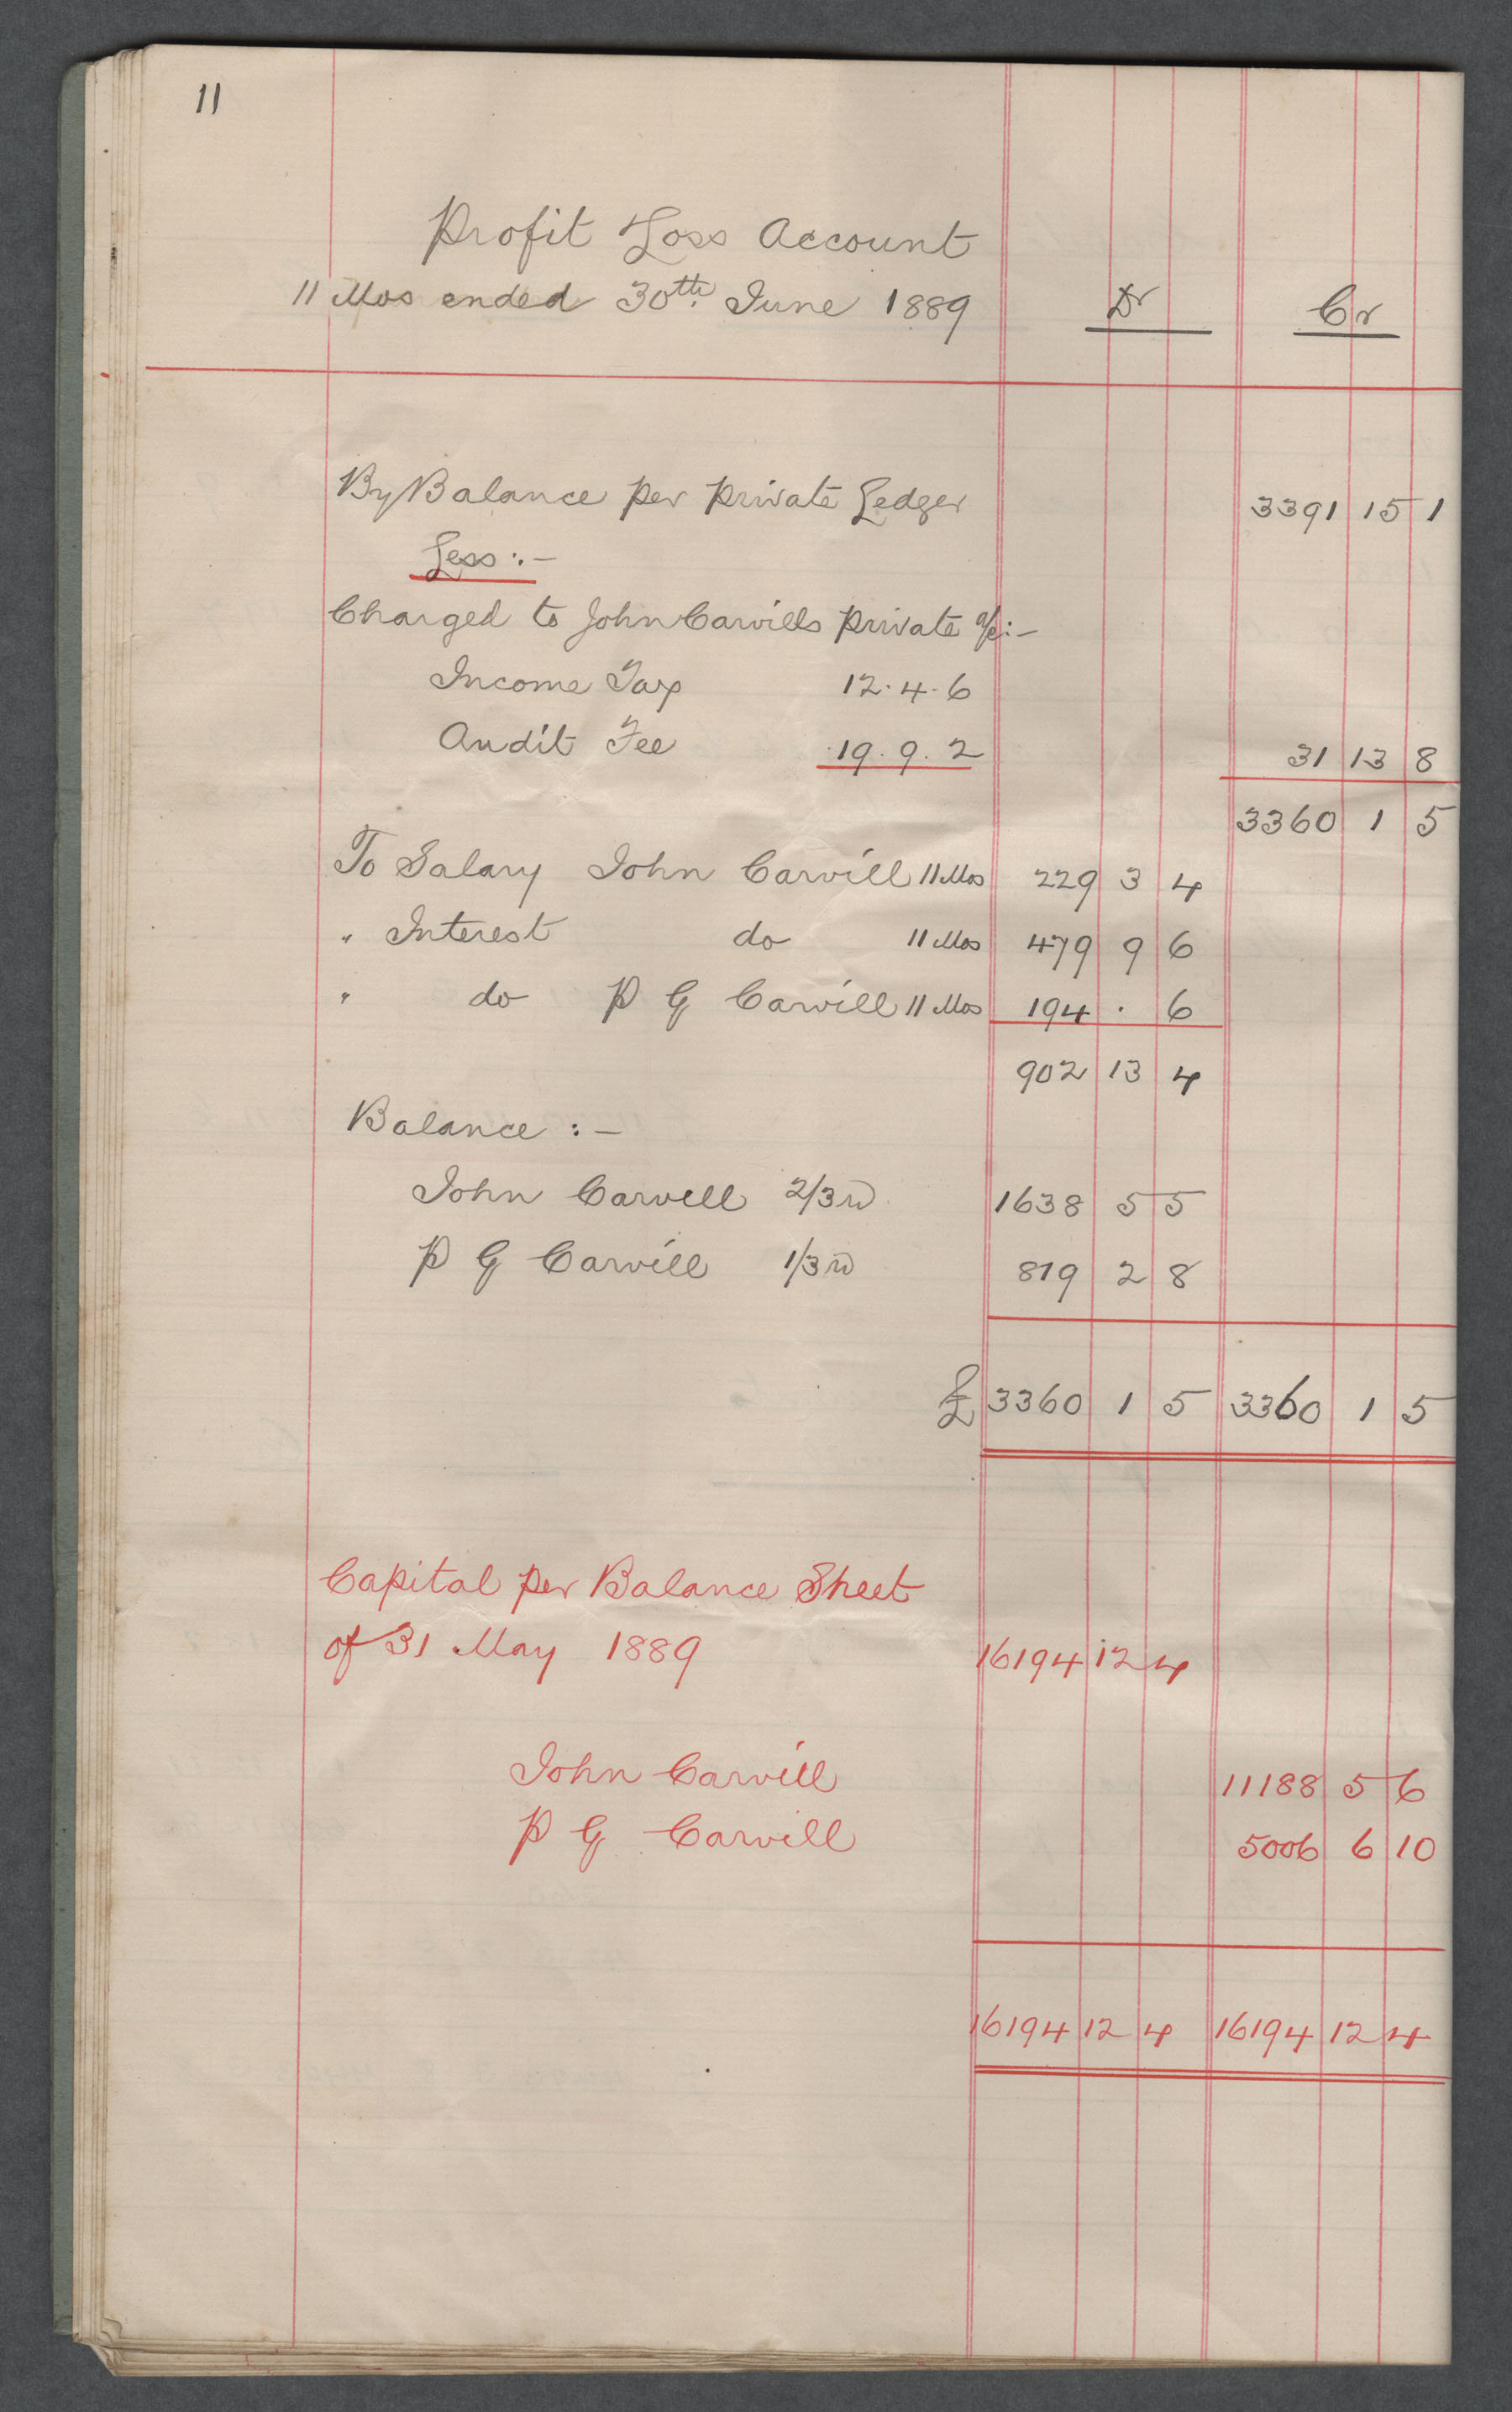 11
Profit & Loss Account
11 Mos ended 30th June 1889 Dr Cr
By Balance per Private Ledger 3391 15 1
Less :-
Charged to John Carvills Private a/c :-
Income Tax 12. 4. 6
Audit Fee 19. 9. 2 31 13 8
3360 1 5
To Salary John Carvill 11 Mos 229 3 4
" Interest do 11 Mos 479 9 6
" do P G Carvill 11 Mos 194 . 6
902 13 4
Balance :-
John Carvill 2/3rd 1638 5 5
P G Carvill 1/3rd 819 2 8
£ 3360 1 5 3360 1 5
Capital per Balance Sheet
of 31 May 1889 16194 12 4
John Carvill 11188 5 6
P G Carvill 5006 6 10
16194 12 4 16194 12 4